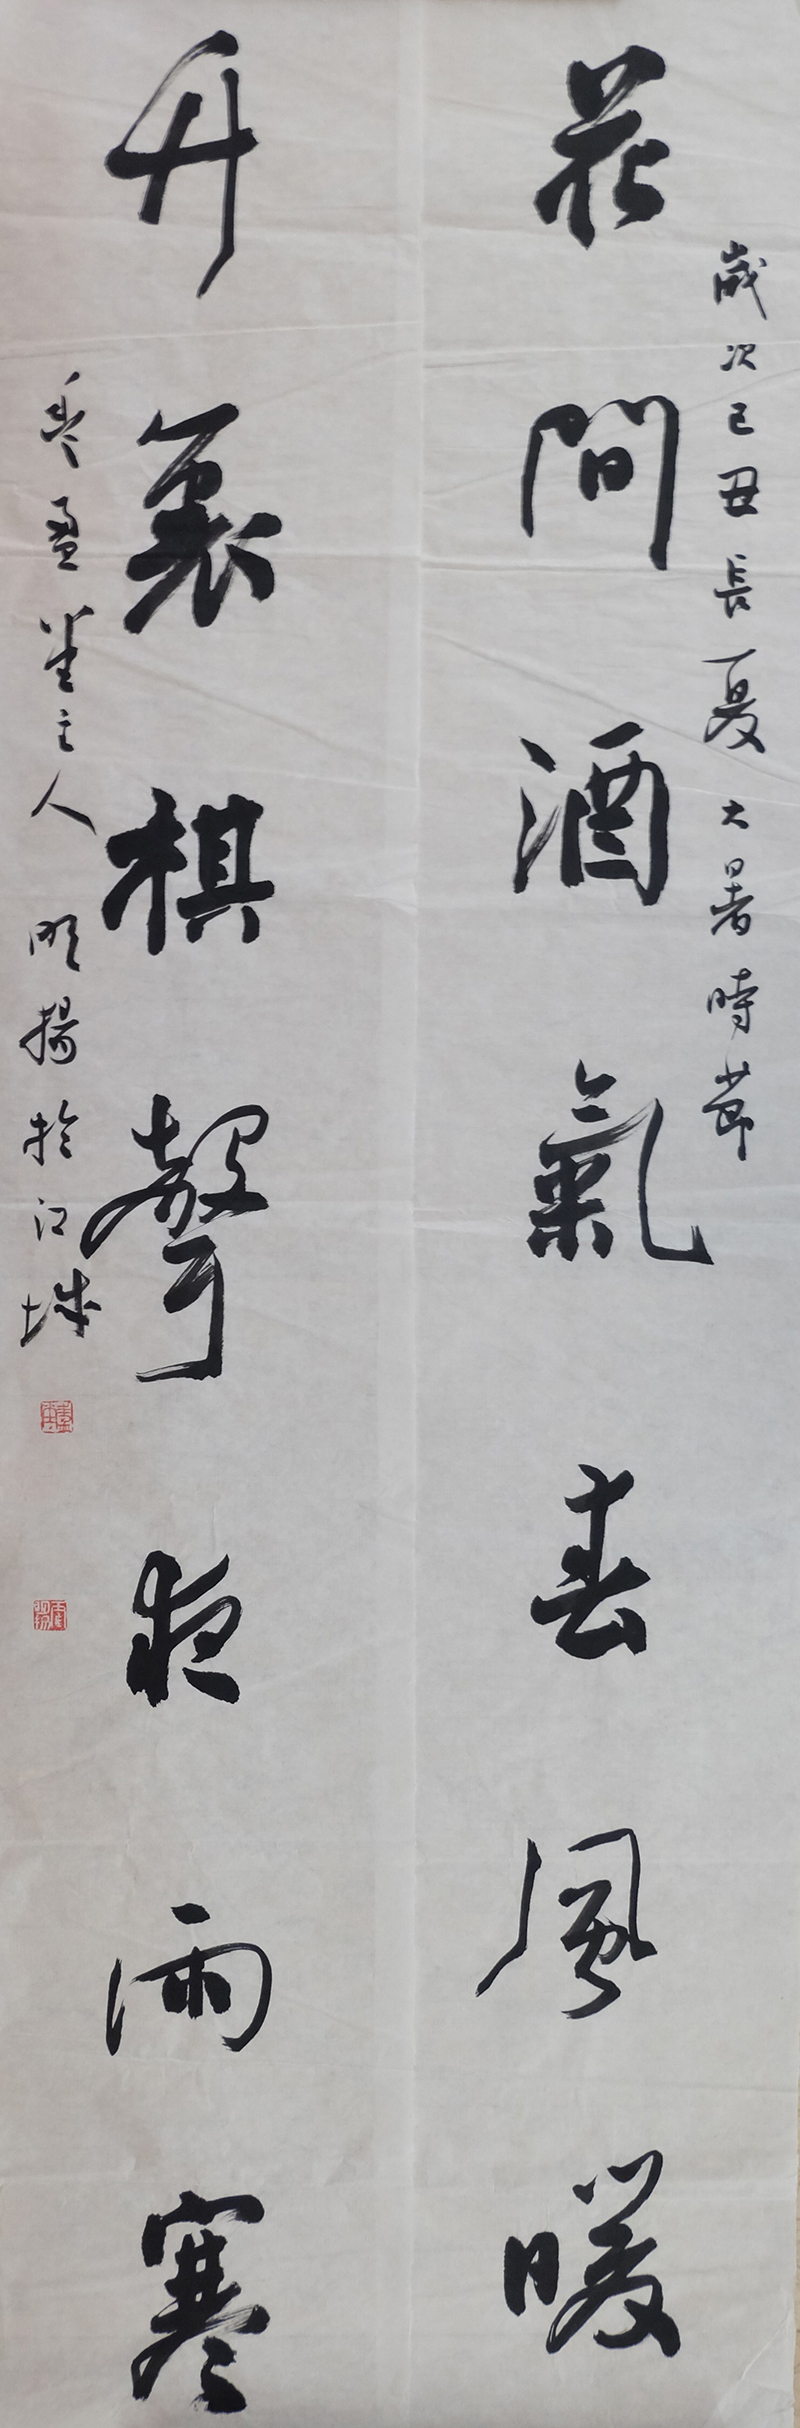 歲次己丑長夏大暑時節
花間酒氣春風暖
竹裏棋聲夜雨寒
盈堂主人明揚於江城